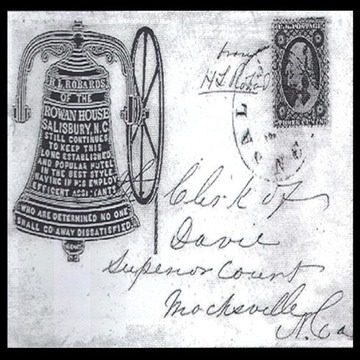 H.L. ROBARDS
OF THE
ROWAN HOUSE
SALISBURY, N.C.
STILL CONTINUES
TO KEEP THIS
LONG ESTABLISHED
AND POPULAR HOTEL
IN THE BEST STYLE.
HAVING IN HIS EMPLOY
EFFICENT ASSISTANTS
WHO ARE DETERMINED NO ONE
SHALL GO AWAY DISSATISFIED.
from
U.S. POSTAGE
Clerk of
Davie
Superior Court
Mocksville
N. Ca